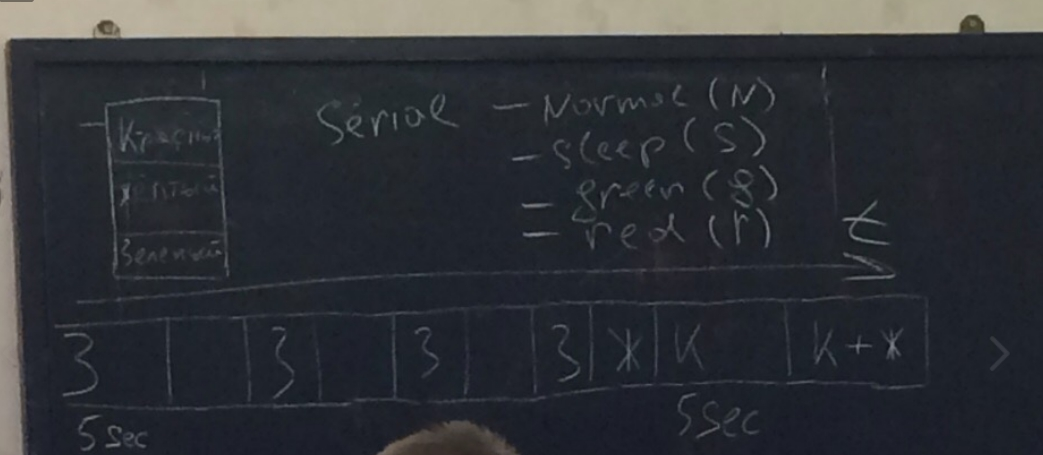 Красный
жёлтый
Зеленый
Serial
– Normal (N)
– sleep (S)
– green (g)
– red (r)
t
З З З З Ж К К+Ж
5 sec
5 sec